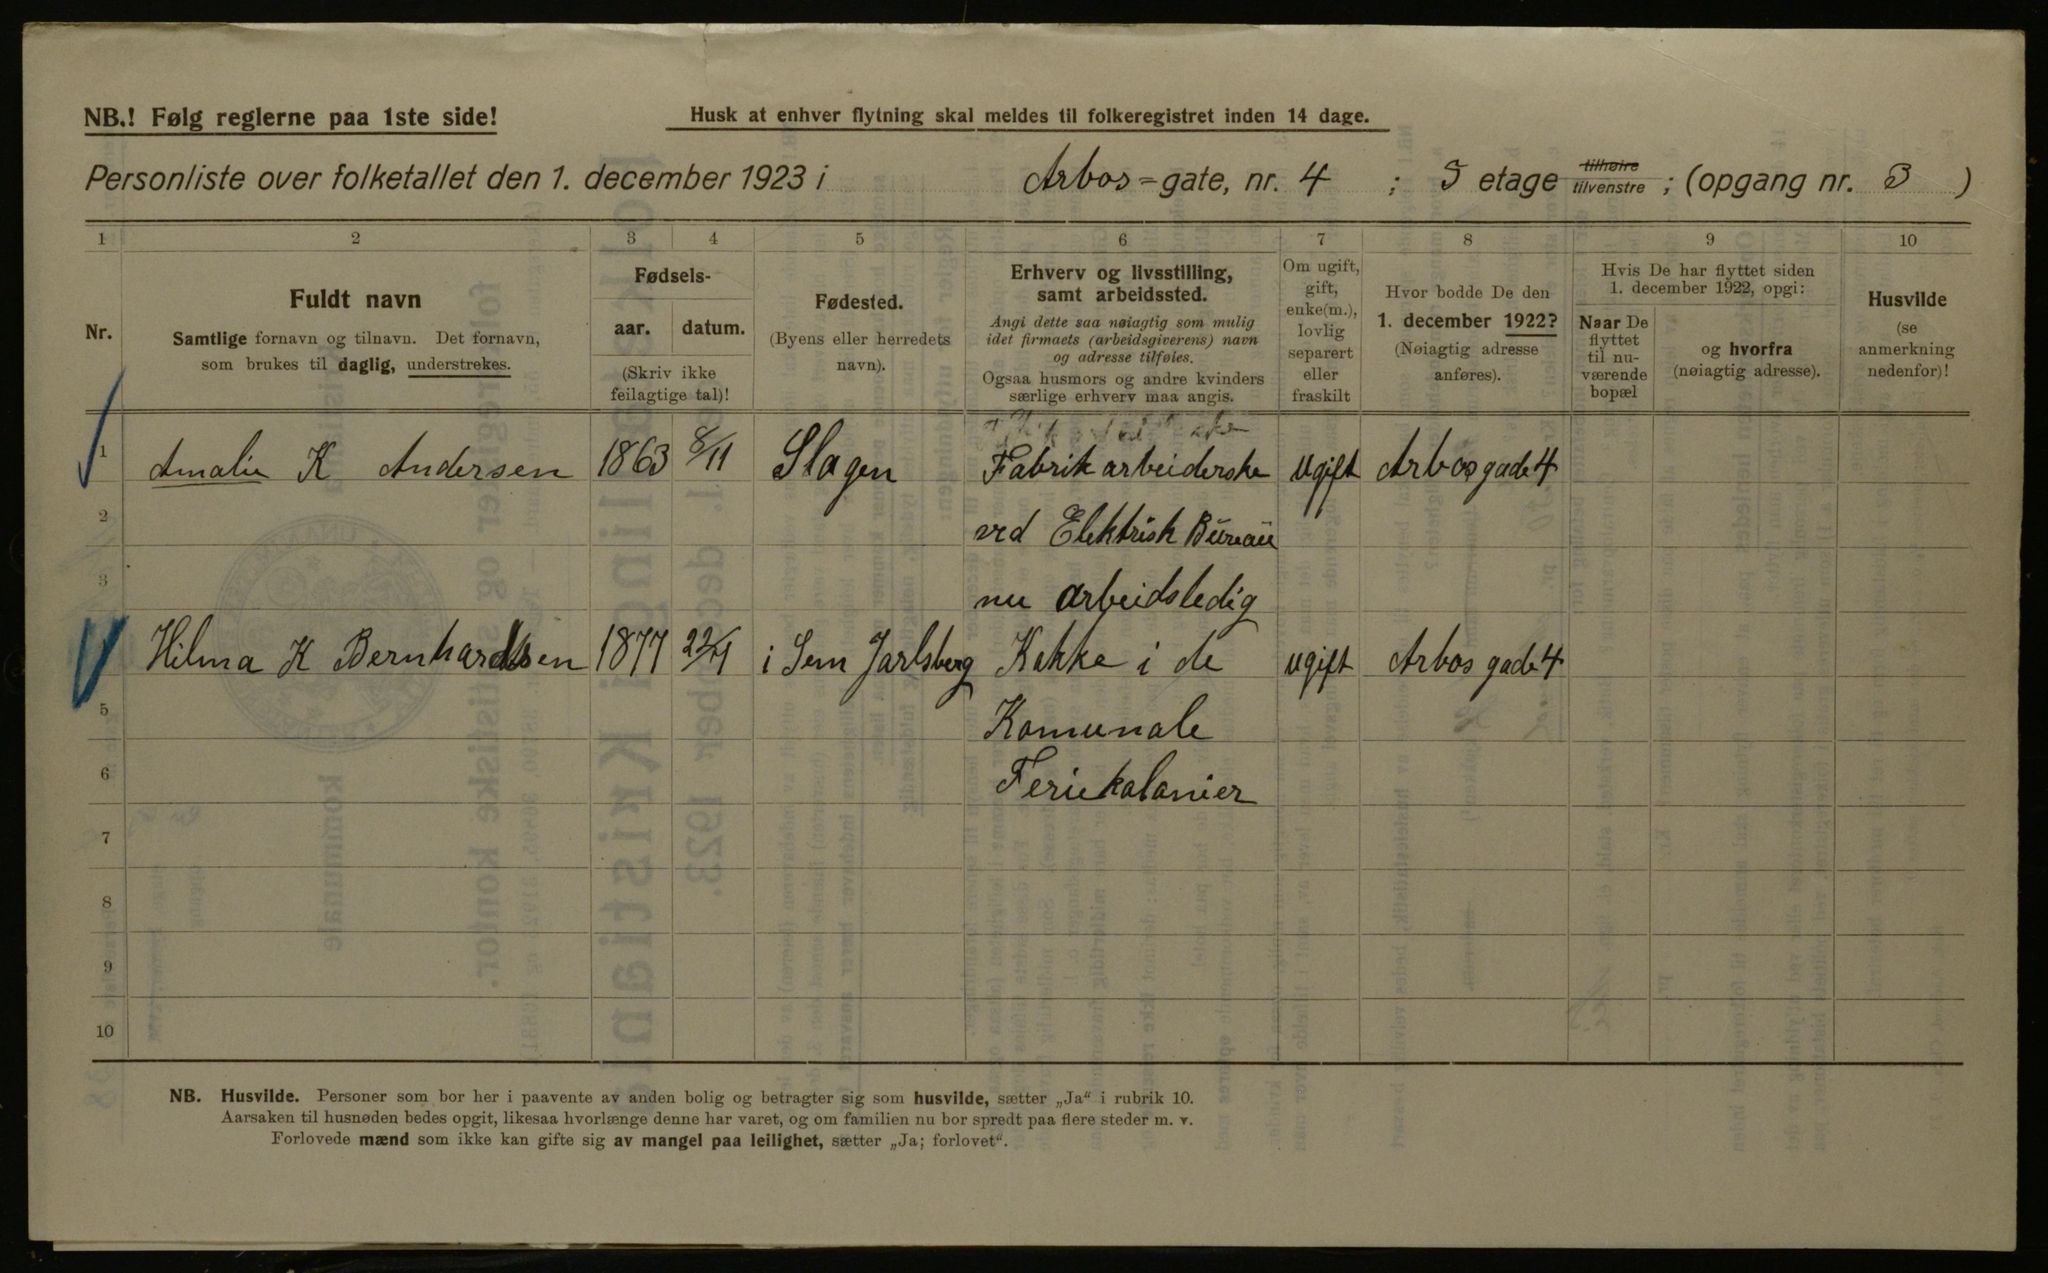 NB.! Følg reglerne paa 1ste side!
Husk at enhver flytning skal meldes til folkeregistret inden 14 dage.
Personliste over folketallet den 1. december 1923 i Arbos=gate, nr. 4 ; 5 etage tilhøire tilvenstre ; (opgang nr. 3 )
1 2 3 4 5 6 7 8 9 10
Nr.
Fuldt navn
Samtlige fornavn og tilnavn. Det fornavn,
som brukes til daglig, understrekes.
Fødsels-
aar. datum.
(Skriv ikke
feilagtige tal)!
Fødested.
(Byens eller herredets
navn).
Erhverv og livsstilling,
samt arbeidssted.
Angi dette saa nøiagtig som mulig
idet firmaets (arbeidsgiverens) navn
og adresse tilføies.
Ogsaa husmors og andre kvinders
særlige erhverv maa angis.
Om ugift,
gift,
enke(m.),
lovlig
separert
eller
fraskilt
Hvor bodde De den
1. december 1922?
(Nøiagtig adresse
anføres).
Hvis De har flyttet siden
1. december 1922, opgi:
Naar De
flyttet
til nu-
værende
bopæl
og hvorfra
(nøiagtig adresse).
Husvilde
(se
anmerkning
nedenfor)!
1 Amalie K Andersen 1863 8/11 Slagen Fabrik arbeiderske ugift Arbosgade 4
2 ved Elektrisk Bureau
3 nu arbeidsledig
Hilma K Bernhardsen 1877 22/11 i Sem Jarlsberg Kokke i de ugift Arbos gade 4
5 Komunale
6 Feriekolonier
7
8
9
10
NB. Husvilde. Personer som bor her i paavente av anden bolig og betragter sig som husvilde, sætter „Ja“ i rubrik 10.
Aarsaken til husnøden bedes opgit, likesaa hvorlænge denne har varet, og om familien nu bor spredt paa flere steder m. v.
Forlovede mænd som ikke kan gifte sig av mangel paa leilighet, sætter „Ja; forlovet“.